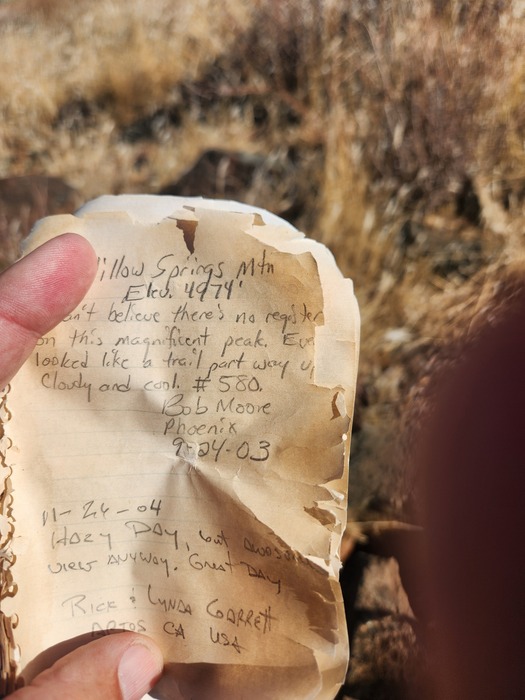 illow Springs Mtn
Elev. 4974'
n't believe there's no register
on this magnificent peak. Eve
looked like a trail part way u
Cloudy and cool. # 580.
Bob Moore
Phoenix
9-24-03
11-26-04
Hazy Day, but awesome
view anyway. Great Day
Rick & Lynda Garrett
Aptos CA USA